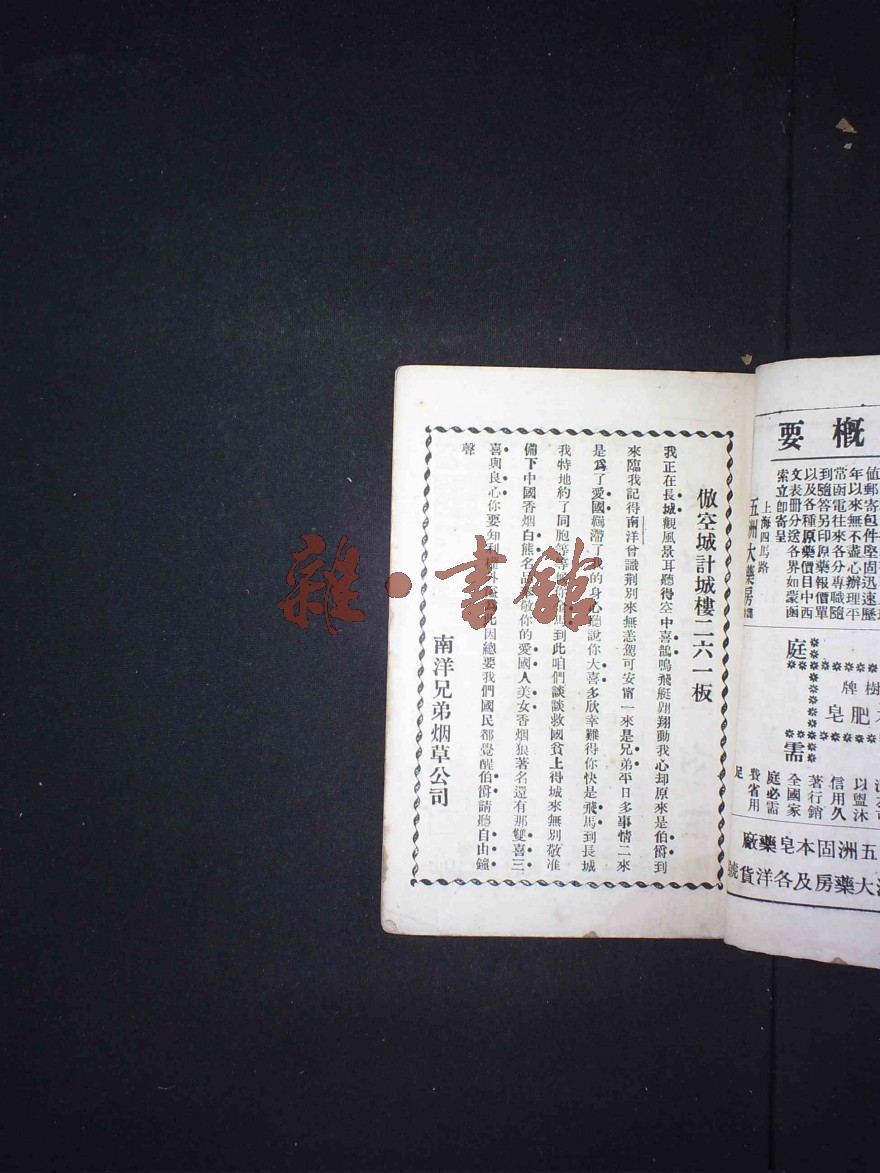 倣空城計城樓二六一板
我正在長城觀風景耳聽得空中喜鵲鳴飛艇翊翔動我心却原來是伯爵到
來臨我記得南洋曾識荆別來無恙駕可安甯一來是兄弟平日多事情二來
是爲了愛國羈滯了我的身心聽說你大喜多欣幸難得你快是飛馬到長城
我特地約了同胞等等你馬到此咱們談談救國貧上得城來無別敬准
備下中國香烟白熊名品敬你的愛國人美女香烟狠著名還有那雙喜三
喜與良心你要知利權外因總要我們國民都覺醒伯爵請聽自由鐘
聲
南洋兄弟烟草公司
概要
郵寄包件堅固迅速歷
年以來無不盡心辦理平
常函電往來各分專職隨
到隨答另印原藥報價單
以及各種原藥價目中西
文表册分送各界如蒙函
索立卽寄呈
上海四馬路
五洲大藥房
庭
需
樹牌
肥皂
以盥沐
信用久
著行銷
全國家
庭必需
費省用
足
五洲固本皂藥廠
大藥房及各洋貨號
雜·書館